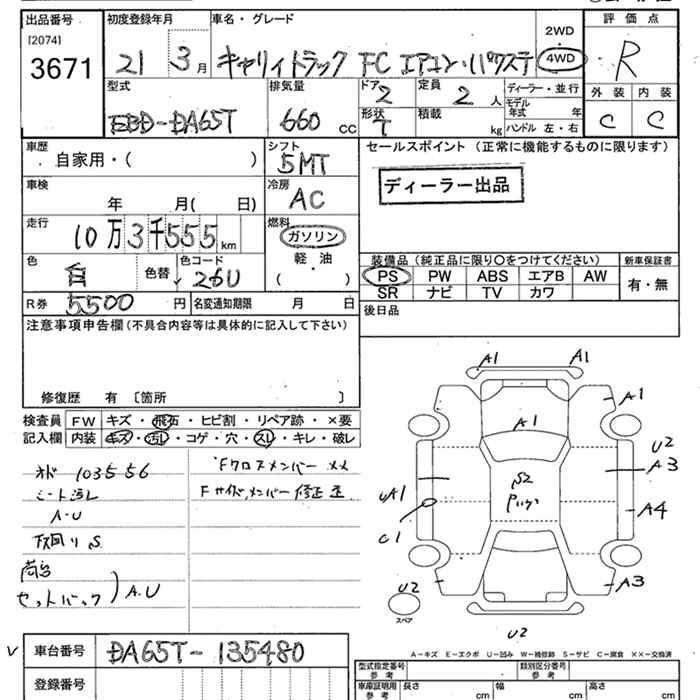 出品番号 初度登録年月 車名・グレード 評価点
[2074] 3671
21 3月 キャリィトラック FC エアコン・パワステ 2WD 4WD R
型式 排気量 ドア 2 定員 2人 ディーラー・並行 外装 内装
EBD-DA65T 660 CC 形状 T 積載 kg モデル年式 年 C C
ハンドル 左・右
車歴 シフト セールスポイント(正常に機能するものに限ります)
自家用・( ) 5MT
車検 冷房 ディーラー出品
年 月( 日) AC
走行 燃料
10万3千555km ガソリン
軽・油
装備品(純正品に限り○をつけてください) 新車保証書
色 白 色替 色コード 26U ( ・ ) PS PW ABS エアB AW 有・無
SR ナビ TV カワ
R券 5500円 名変通知期限 月 日 後日品
注意事項申告欄(不具合内容等は具体的に記入して下さい)
修復歴 有〔箇所 〕
検査員 FW キズ・飛石・ヒビ割・リペア跡・×要
記入欄 内装 キズ・汚れ・コゲ・穴・スレ・キレ・破レ
103556 Fクロスメンバー ××
シート汚レ Fサイドメンバー 修正 歪
A・U
下回り S
荷台
セットバック A.U
A1 A1
A1
A1
U2
A3
S2
UA1
A4
C1
A3
U2
スペア
U2
A-キズ E-エクボ U-凹み W-補修跡 S-サビ C-腐食 ××-交換済
V 車台番号 DA65T-135480
登録番号
型式指定番号 参考 類別区分番号 参考
車庫証明用 参考 長さ cm 幅 cm 高さ cm